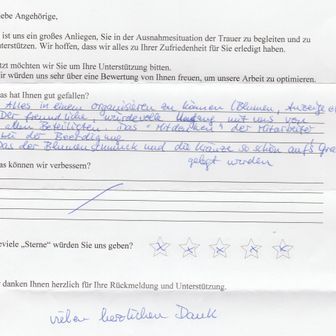 ebe Angehörige,
ist uns ein großes Anliegen, Sie in der Ausnahmesituation der Trauer zu begleiten und zu
nterstützen. Wir hoffen, dass wir alles zu Ihrer Zufriedenheit für Sie erledigt haben.
tzt möchten wir Sie um Ihre Unterstützung bitten.
ir würden uns sehr über eine Bewertung von Ihnen freuen, um unsere Arbeit zu optimieren.
as hat Ihnen gut gefallen?
Alles in einem organisieren zu können (Blumen, Anzeige e
Der freundliche, würdevolle Umgang mit uns von
allen Beteiligten. Das "Mitdenken" der Mitarbeiter
bei der Beerdigung
Das der Blumenschmuck und die Kränze so schön aufs Gra
gelegt wurden
as können wir verbessern?
eviele „Sterne“ würden Sie uns geben?
danken Ihnen herzlich für Ihre Rückmeldung und Unterstützung.
vielen herzlichen Dank